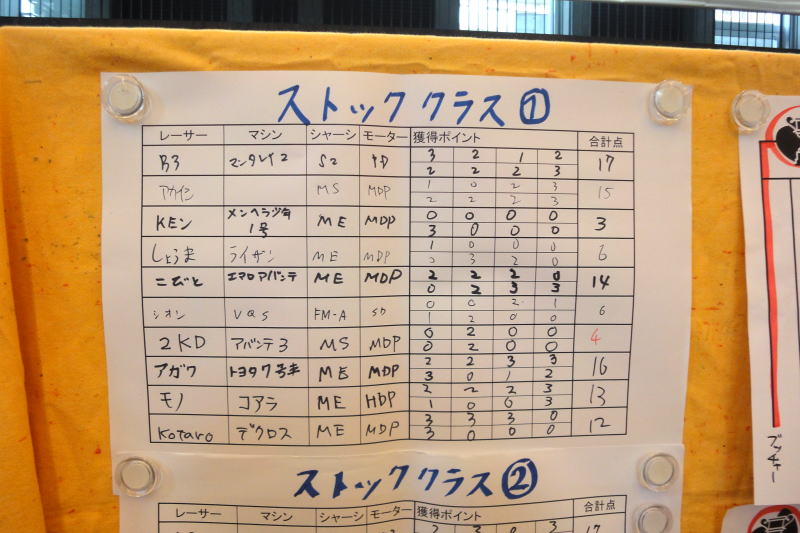 ストッククラス①
レーサー マシン シャーシ モーター 獲得ポイント 合計点
B3 マンタレイ2 S2 3 2 1 2 17
2 2 2 3
アカイン MS MDP 1 0 2 3 15
2 2 2 3
KEN メンヘラジ号 1号 ME MDP 0 0 0 0 3
3 0 0 0
しょうま ライザン ME MDP 1 0 0 0 6
0 3 2 0
こびと エアロアバンテ ME MDP 2 2 2 0 14
0 2 3 3
シオン VQS FM-A SD 0 0 2 1 6
1 2 0 0
2KD アバンテ3 MS MDP 0 2 0 0 4
0 2 0 0
アガワ トヨタ7号車 ME MDP 2 2 3 3 16
3 0 1 2
モノ コアラ ME HDP 2 2 2 3 13
1 0 0 3
Kotaro デクロス ME MDP 3 3 3 0 12
3 0 0 0
ストッククラス②
レーサー マシン シャーシ モーター 獲得ポイント 合計点
ブッチャー